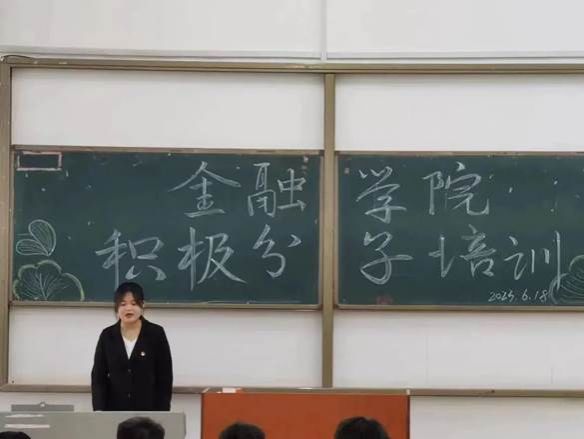 金融学院
积极分子培训
2025.6.18